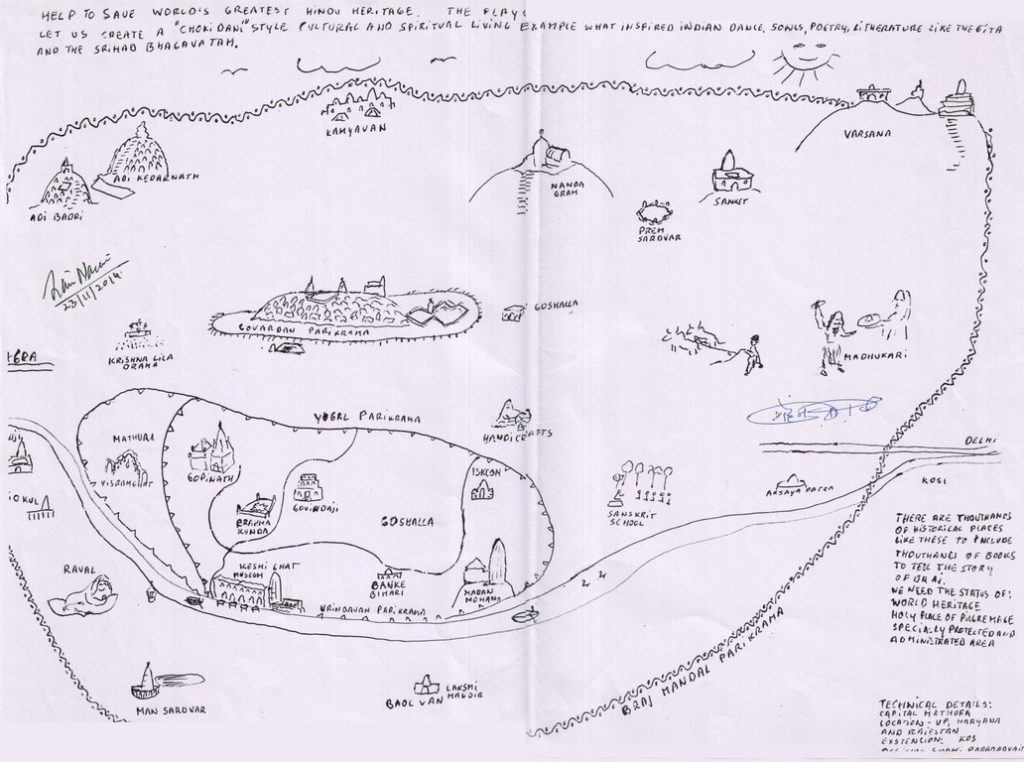 HELP TO SAVE WORLD'S GREATEST HINDU HERITAGE. THE PLAY
LET US CREATE A "CHOKIDANI" STYLE CULTURAL AND SPIRITUAL LIVING EXAMPLE WHAT INSPIRED INDIAN DANCE, SONGS, POETRY, LITHERATURE LIKE THE GITA
AND THE SRIMAD BHAGAVATAM.
KAMYAVAN
VARSANA
ADI KEDARNATH
ADI BADRI
NANDA
GRAM
SANKET
PREM
SAROVAR
23/11/2014
GOVARDAN PARIKRAMA
GOSHALLA
KRISHNA LILA
DRAMA
AGRA
MADHUKARI
YUGAL PARIKRAMA
HANDICRAFTS
MATHURA
VISRAMGHAT
GOPINATH
GOVINDAJI
ISKCON
DELHI
KOSI
BRAHMA
KUNDA
GOSHALLA
SANSKRIT
SCHOOL
AKSAYA PATRA
GOKUL
KESHI GHAT
MUSEUM
BANKE
BIHARI
MADAN
MOHANA
VRINDAVAN PARIKRAMA
RAVAL
THERE ARE THOUTHANDS
OF HISTORICAL PLACES
LIKE THESE TO INCLUDE
THOUTHANDS OF BOOKS
TO TELL THE STORY
OF BRAJ.
WE NEED THE STATUS OF:
WORLD HERITAGE
HOLY PLACE OF PILGREMAGE
SPECIALLY PROTECTED AND
ADMINISTRATED AREA
BRAJ MANDAL PARIKRAMA
MAN SAROVAR
LAKSMI
BAOLVAN MANDIR
TECHNICAL DETAILS:
CAPITAL MATHURA
LOCATION - UP, HARYANA
AND RAJESTAN
EXSTENCION: KOS